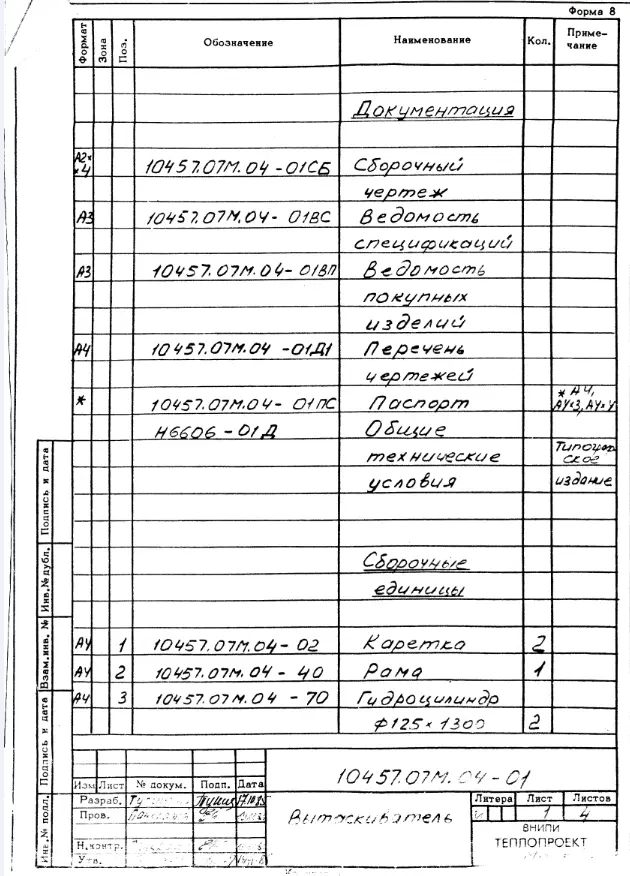 Форма 8
Формат Зона Поз. Обозначение Наименование Кол. Приме-
чание
Документация
А2×
×4 10457.07М.04-01СБ Сборочный
чертеж
А3 10457.07М.04-01ВС Ведомость
спецификаций
А3 10457.07М.04-01ВП Ведомость
покупных
изделий
А4 10457.07М.04-01Д1 Перечень
чертежей
* 10457.07М.04-01ПС Паспорт * А4,
А4×3, А4×4
Н6606-01Д Общие
технические
условия издание
Сборочные
единицы
А4 1 10457.07М.04-02 Каретка 2
А4 2 10457.07М.04-40 Рама 1
А4 3 10457.07М.04-70 Гидроцилиндр
Ф125×1300 2
Инв.№ подл. Подпись и дата Взам.инв. № Инв.№ дубл. Подпись и дата
10457.07М.04-01
Изм Лист № докум. Подп. Дата
Разраб.
Пров.
Н.контр.
Утв.
Вытаскиватель
Литера Лист Листов
И 1 4
ВНИПИ
ТЕПЛОПРОЕКТ